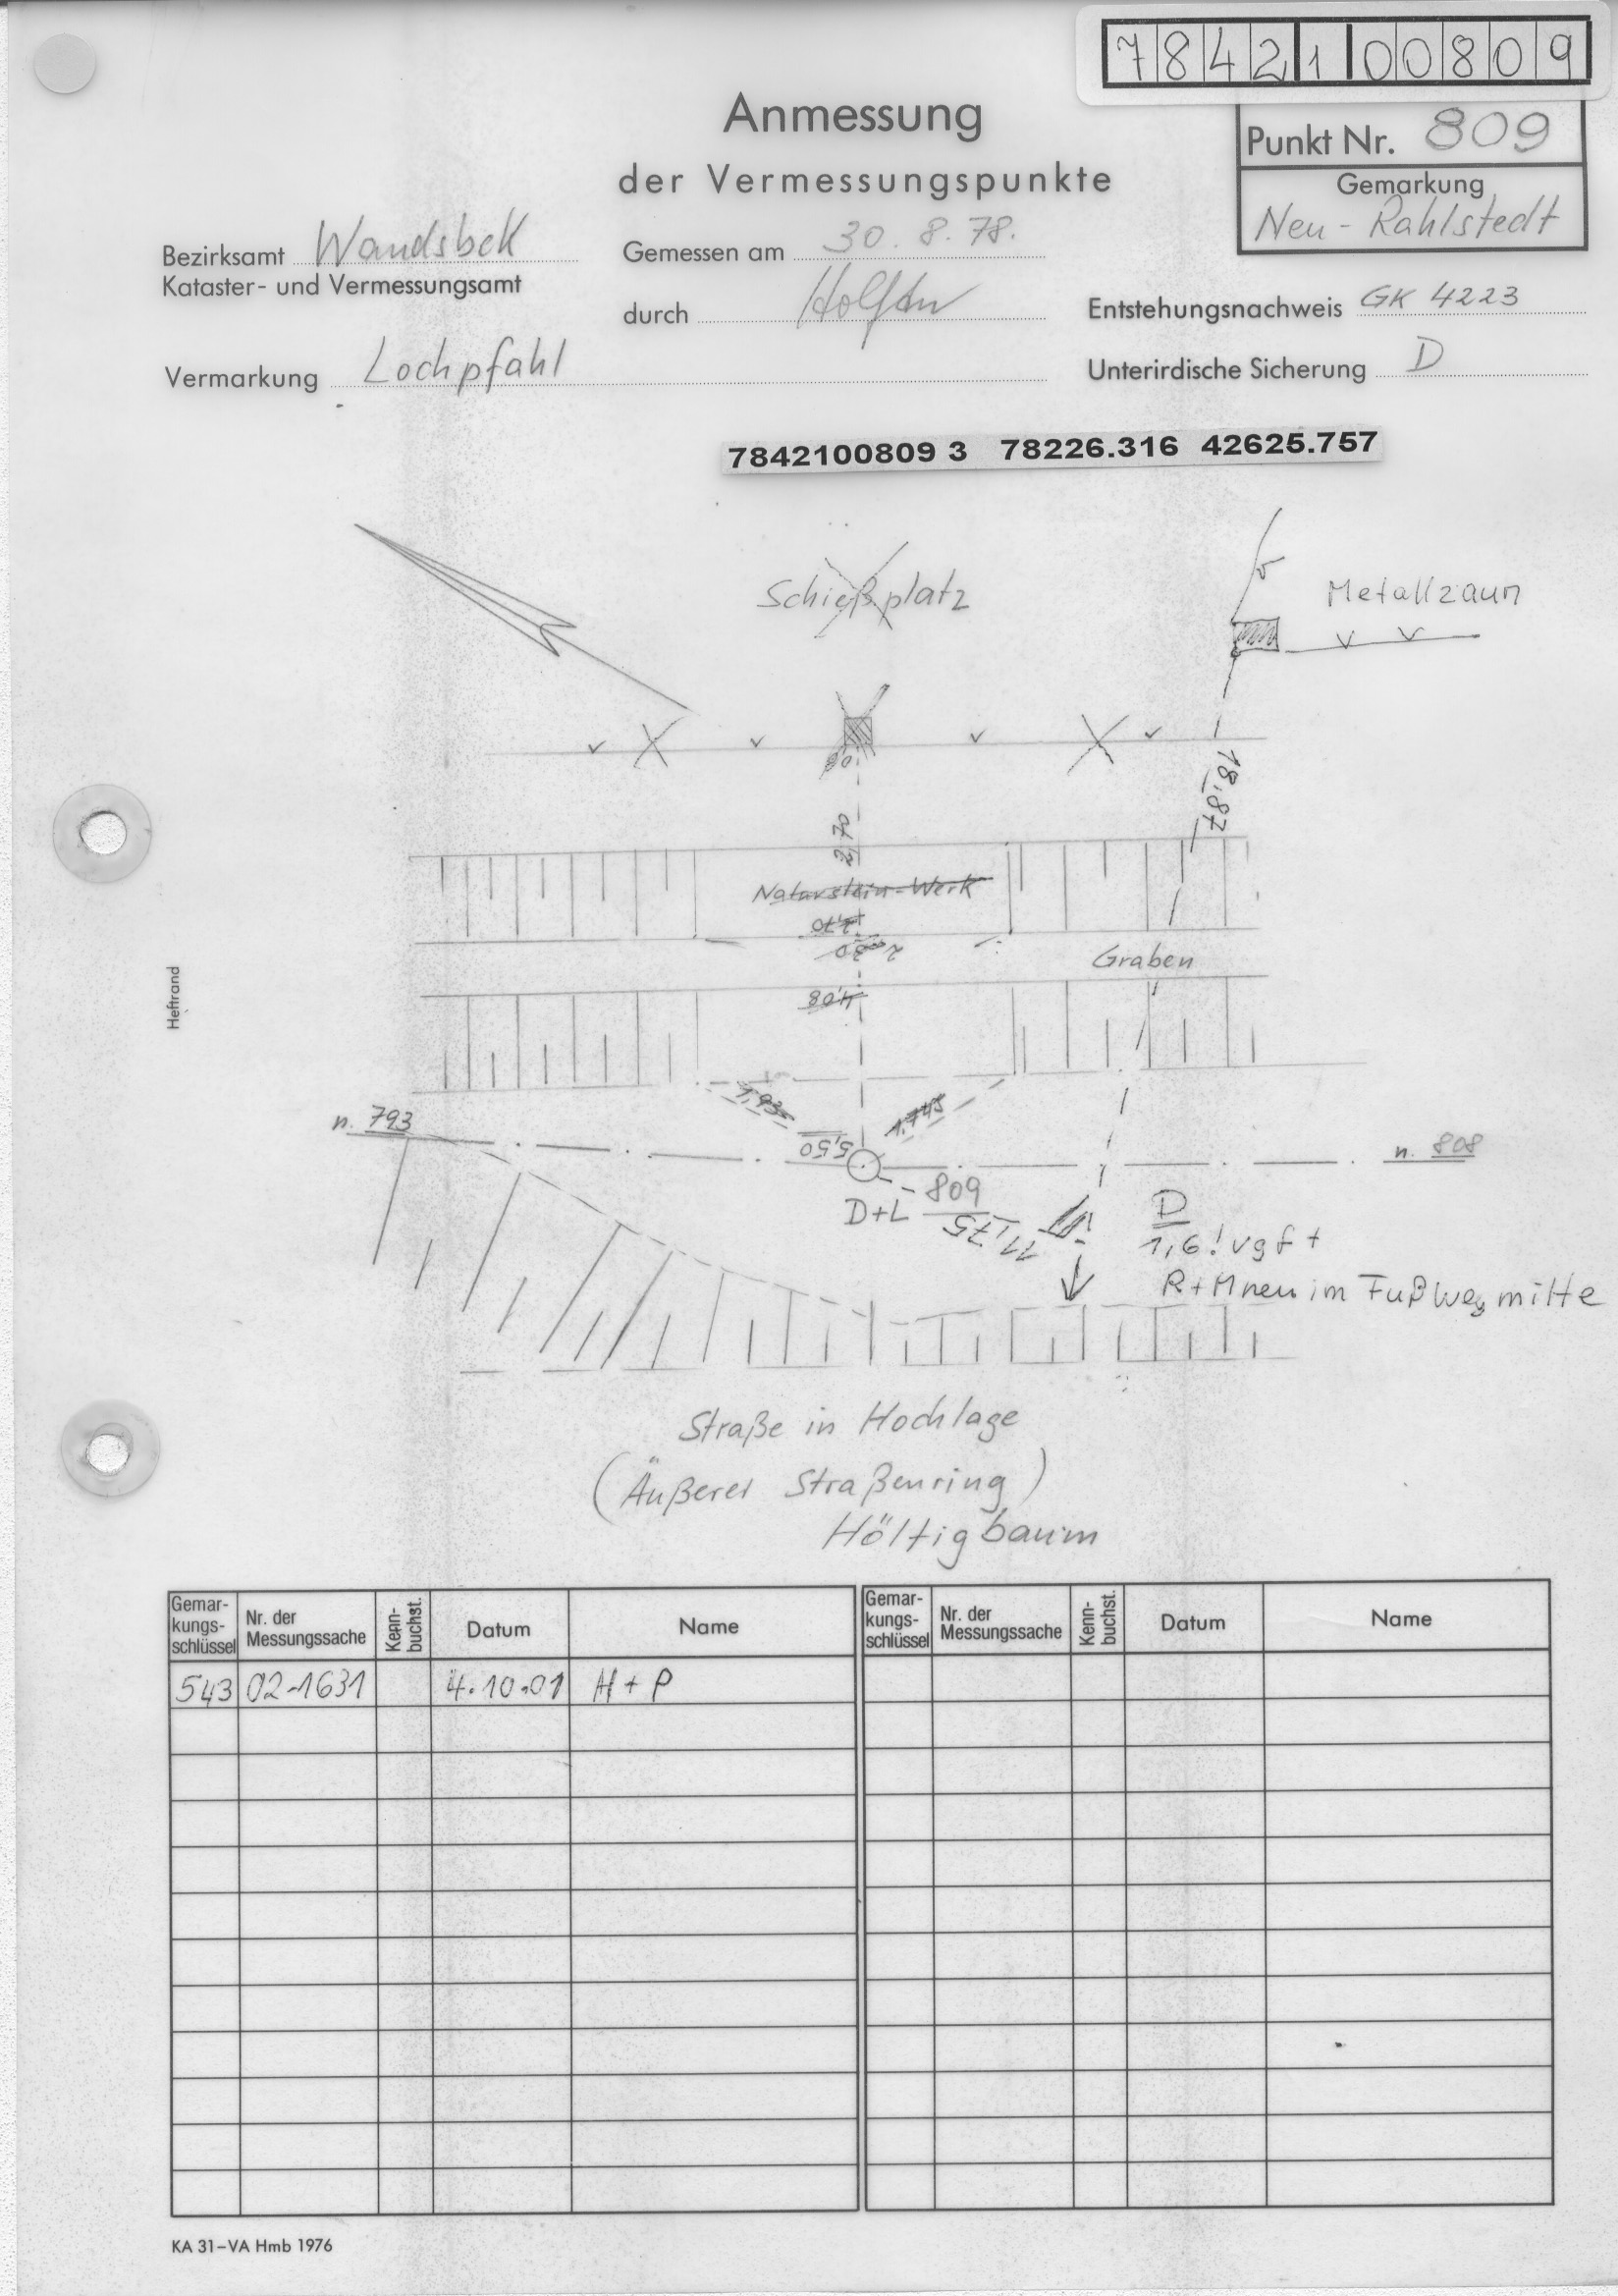 78421 00809
Anmessung
der Vermessungspunkte
Punkt Nr. 809
Gemarkung
Neu-Rahlstedt
Bezirksamt Wandsbek
Kataster- und Vermessungsamt
Gemessen am 30. 8. 78.
durch
Entstehungsnachweis GK 4223
Vermarkung Lochpfahl
Unterirdische Sicherung D
7842100809 3 78226.316 42625.757
Schießplatz
Metallzaun
18,87
Naturstein-Werk
Graben
Heftrand
4,08
n. 793
1,93
1,745
5,50
n. 808
809
D+L
11,75
D
1,6! vgf+
R+M neu im Fußwegmitte
Straße in Hochlage
(Äußerer Straßenring)
Höltigbaum
Gemar-kungs-schlüssel Nr. der Messungssache Kenn-buchst. Datum Name Gemar-kungs-schlüssel Nr. der Messungssache Kenn-buchst. Datum Name
543 02-1631 4.10.01 H + P
KA 31-VA Hmb 1976